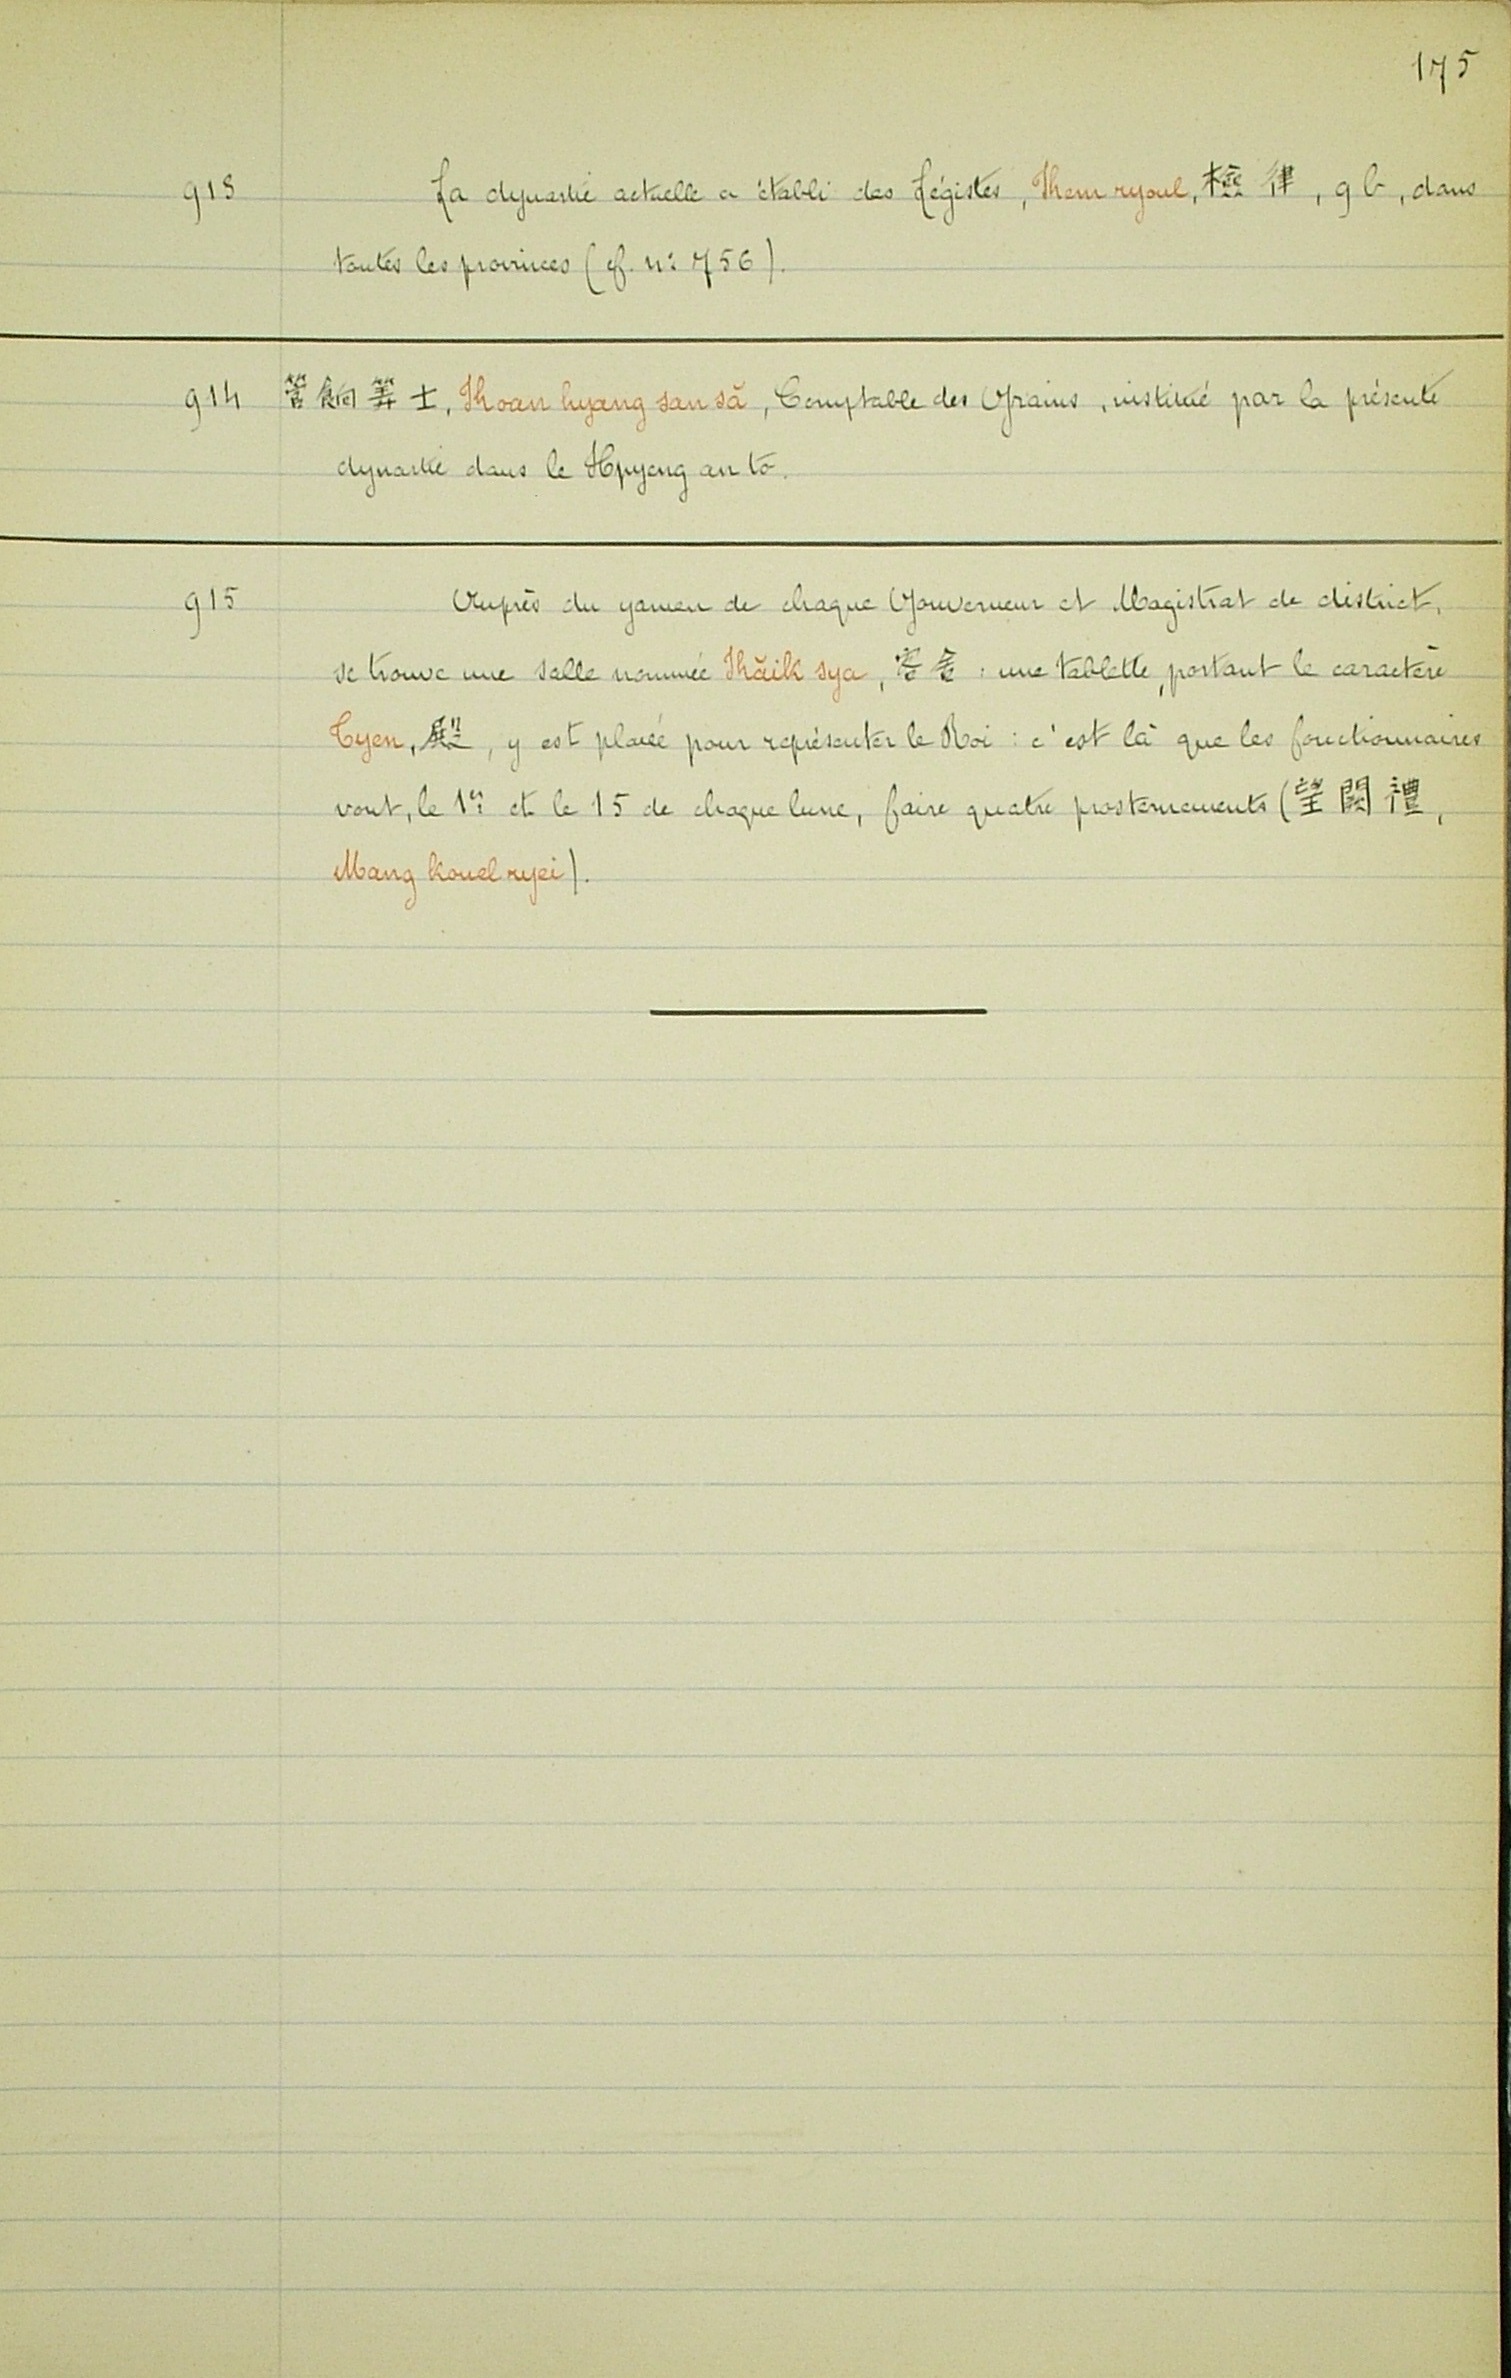 175
913 La dynastie actuelle a établi des Légistes, Kem ryoul, 檢律, 9b, dans
toutes les provinces (cf. n° 756).
914 管餉筭士, Koan hyang san să, Comptable des Grains, institué par la présente
dynastie dans le Hpyeng an to.
915 Auprès du yamen de chaque Gouverneur et Magistrat de district,
se trouve une salle nommée Kăik sya, 客舍 : une tablette, portant le caractère
Tyen, 殿, y est placée pour représenter le Roi : c'est là que les fonctionnaires
vont, le 1er et le 15 de chaque lune, faire quatre prosternements (望闕禮,
Mang kouel ryei).